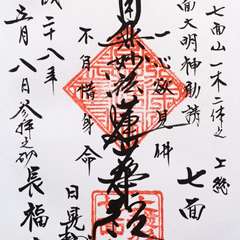 七面山一木二体之
上総
七面
七面大明神勧請
一心欲見仏
南無妙法蓮華経
不自惜身命
日晃
長福
二十八年
五月八日参拝之砌